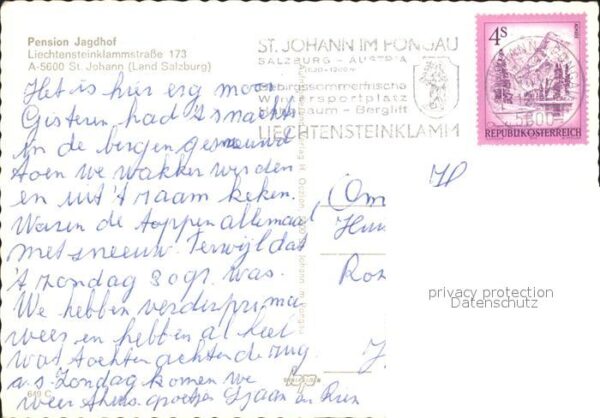 Pension Jagdhof
Liechtensteinklammstraße 173
A-5600 St. Johann (Land Salzburg)
ST. JOHANN IM PONGAU
SALZBURG - AUSTRIA
Gebirgssommerfrische
Wintersportplatz
Berglift
LIECHTENSTEINKLAMM
4S
REPUBLIK ÖSTERREICH
5600
Het is hier erg mooi
Gisteren had 's nachts
in de bergen gesneeuwd
toen we wakker werden
en uit 't raam keken.
Waren de toppen allemaal
met sneeuw. Terwijl dat
't zondag 30 gr. was.
We hebben verder prima
weer en hebben al heel
wat tochten achter de rug
a.s. Zondag komen we
weer thuis. groetjes en Rien
649 C
privacy protection
Datenschutz